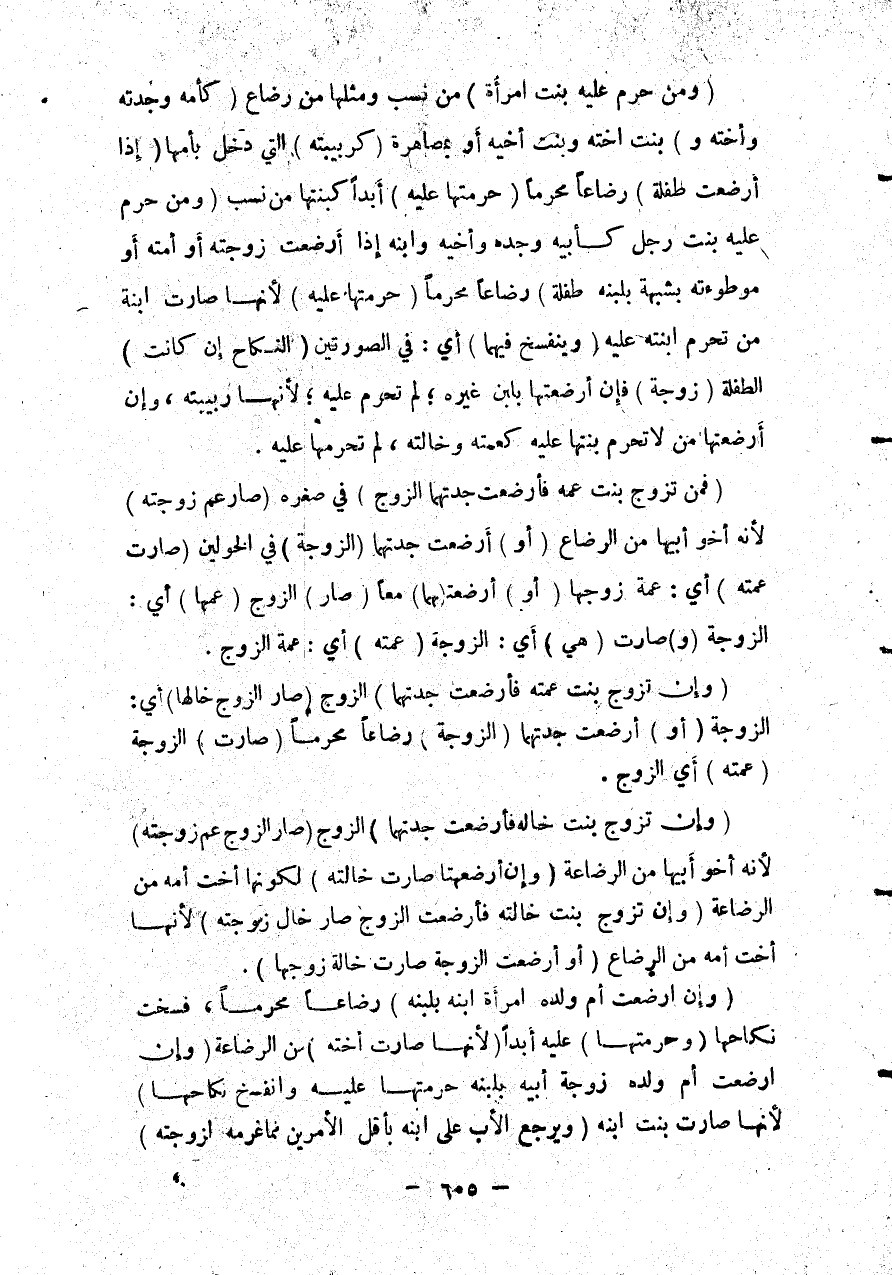 ( ومن حرم عليه بنت امرأة ) من نسب ومثلها من رضاع ( كأمه وجدته
وأخته و ) بنت اخته وبنت أخيه أو بمصاهرة ( كربيبته ) التي دخل بأمها ( إذا
أرضعت طفلة ) رضاعاً محرماً ( حرمتها عليه ) أبداً كبنتها من نسب ( ومن حرم
عليه بنت رجل كأبيه وجده وأخيه وابنه إذا أرضعت زوجته أو أمته أو
موطوءته بشبهة بلبنه طفلة ) رضاعاً محرماً ( حرمتها عليه ) لأنها صارت ابنة
من تحرم ابنته عليه ( وينفسخ فيهما ) أي : في الصورتين ( النكاح إن كانت )
الطفلة ( زوجة ) فإن أرضعتها بابن غيره ؛ لم تحرم عليه ؛ لأنها ربيبته ، وإن
أرضعتها من لاتحرم بنتها عليه كعمته وخالته ، لم تحرمها عليه .
( فمن تزوج بنت عمه فأرضعت جدتهما الزوج ) في صغره ( صار عم زوجته )
لأنه أخو أبيها من الرضاع ( أو ) أرضعت جدتهما ( الزوجة ) في الحولين ( صارت
عمته ) أي : عمة زوجها ( أو ) أرضعت(هما) معاً ( صار ) الزوج ( عمها ) أي :
الزوجة (و)صارت ( هي ) أي : الزوجة ( عمته ) أي : عمة الزوج .
( وإن تزوج بنت عمته فأرضعت جدتهما ) الزوج ( صار الزوج خالها) أي:
الزوجة ( أو ) أرضعت جدتهما ( الزوجة ) رضاعاً محرماً ( صارت ) الزوجة
( عمته ) أي الزوج .
( وإن تزوج بنت خاله فأرضعت جدتهما ) الزوج ( صار الزوج عم زوجته )
لأنه أخو أبيها من الرضاعة ( وإن أرضعتها صارت خالته ) لكونها أخت أمه من
الرضاعة ( وإن تزوج بنت خالته فأرضعت الزوج صار خال زوجته ) لأنها
أخت أمه من الرضاع ( أو أرضعت الزوجة صارت خالة زوجها ) .
( وإن ارضعت أم ولده امرأة ابنه بلبنه ) رضاعاً محرماً ، فسخت
نكاحها ( وحرمتها ) عليه أبداً ( لأنها صارت أخته ) من الرضاعة ( وإن
ارضعت أم ولده زوجة أبيه بلبنه حرمتها عليه وانفسخ نكاحها )
لأنها صارت بنت ابنه ( ويرجع الأب على ابنه بأقل الأمرين مماغرمه لزوجته )
- ٦٠٥ -